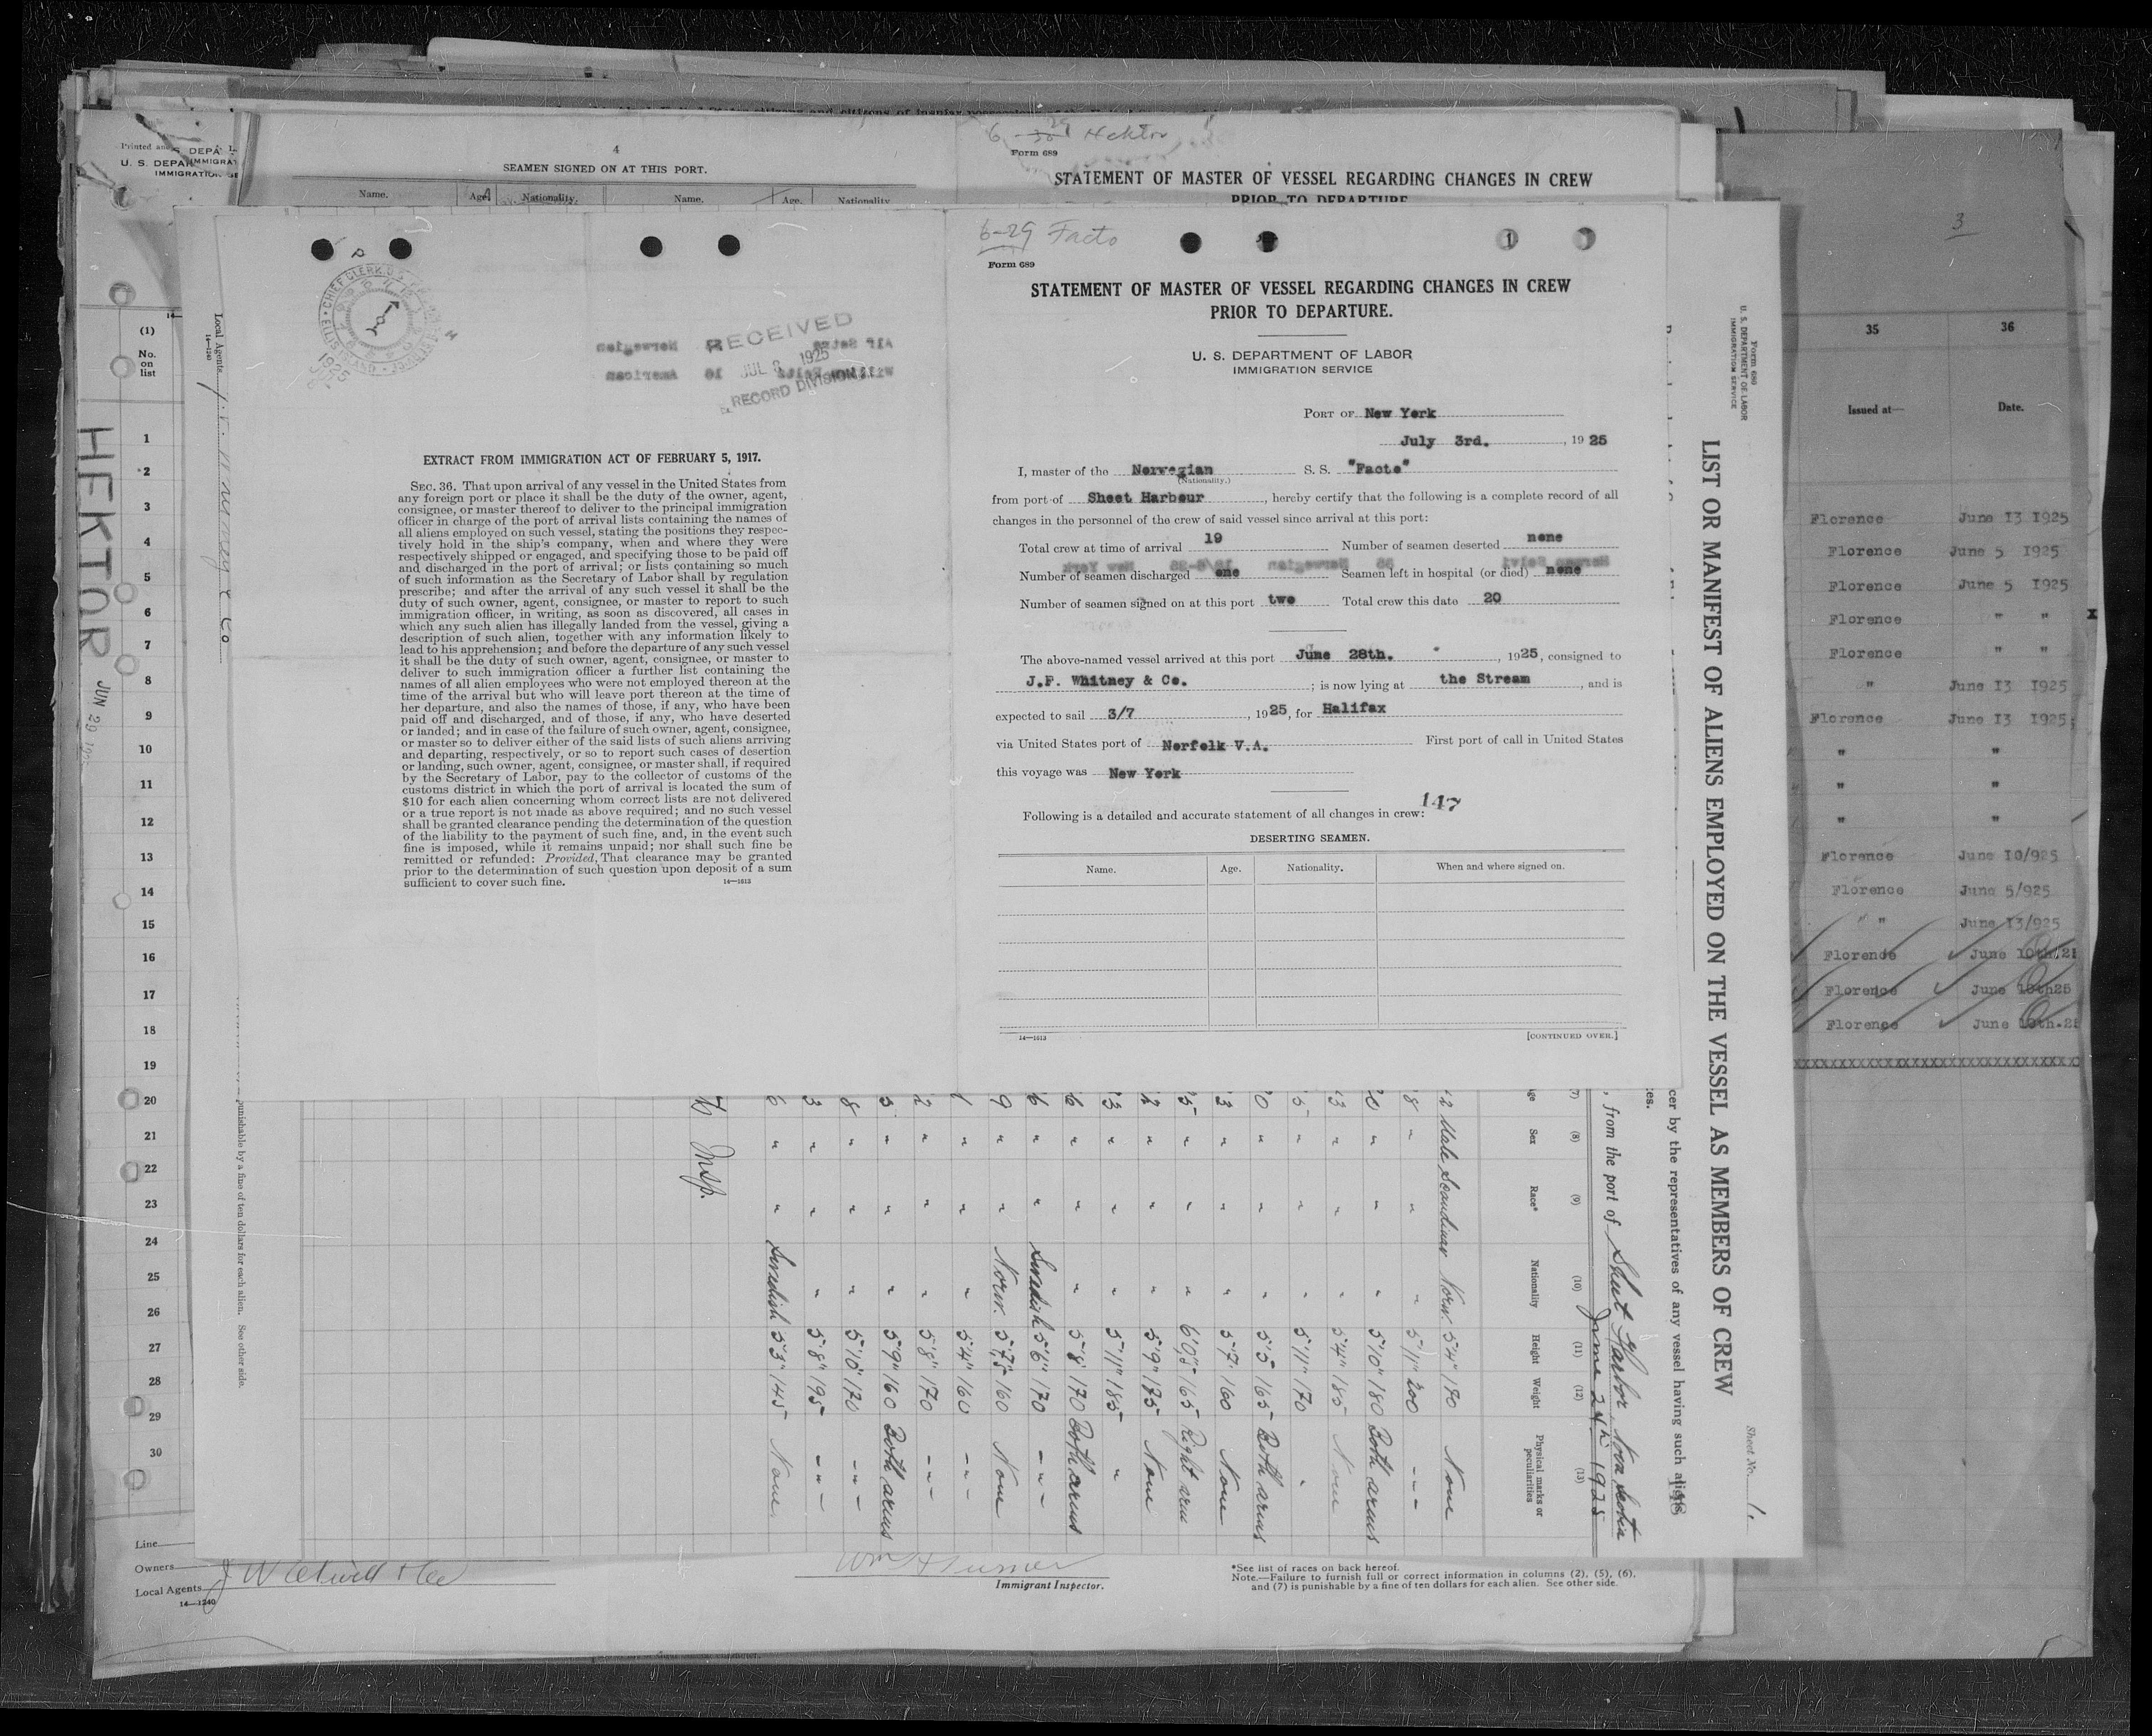 6-29 Hektor
Form 689
4
SEAMEN SIGNED ON AT THIS PORT.
Name. Age. Nationality. Name. Age. Nationality
STATEMENT OF MASTER OF VESSEL REGARDING CHANGES IN CREW
PRIOR TO DEPARTURE
Printed and
U. S. DEPAR
IMMIGRATION SE
(1)
No.
on
list
HEKTOR
1
2
3
4
5
6
7
8
9
10
11
12
13
14
15
16
17
18
19
20
21
22
23
24
25
26
27
28
29
30
Line
Owners
Local Agents
14—1240
Immigrant Inspector.
*See list of races on back hereof.
Note.—Failure to furnish full or correct information in columns (2), (5), (6),
and (7) is punishable by a fine of ten dollars for each alien. See other side.
RECEIVED
JUL 1925
RECORD DIVISION
EXTRACT FROM IMMIGRATION ACT OF FEBRUARY 5, 1917.
SEC. 36. That upon arrival of any vessel in the United States from
any foreign port or place it shall be the duty of the owner, agent,
consignee, or master thereof to deliver to the principal immigration
officer in charge of the port of arrival lists containing the names of
all aliens employed on such vessel, stating the positions they respec-
tively hold in the ship's company, when and where they were
respectively shipped or engaged, and specifying those to be paid off
and discharged in the port of arrival; or lists containing so much
of such information as the Secretary of Labor shall by regulation
prescribe; and after the arrival of any such vessel it shall be the
duty of such owner, agent, consignee, or master to report to such
immigration officer, in writing, as soon as discovered, all cases in
which any such alien has illegally landed from the vessel, giving a
description of such alien, together with any information likely to
lead to his apprehension; and before the departure of any such vessel
it shall be the duty of such owner, agent, consignee, or master to
deliver to such immigration officer a further list containing the
names of all alien employees who were not employed thereon at the
time of the arrival but who will leave port thereon at the time of
her departure, and also the names of those, if any, who have been
paid off and discharged, and of those, if any, who have deserted
or landed; and in case of the failure of such owner, agent, consignee,
or master so to deliver either of the said lists of such aliens arriving
and departing, respectively, or so to report such cases of desertion
or landing, such owner, agent, consignee, or master shall, if required
by the Secretary of Labor, pay to the collector of customs of the
customs district in which the port of arrival is located the sum of
$10 for each alien concerning whom correct lists are not delivered
or a true report is not made as above required; and no such vessel
shall be granted clearance pending the determination of the question
of the liability to the payment of such fine, and, in the event such
fine is imposed, while it remains unpaid; nor shall such fine be
remitted or refunded: Provided, That clearance may be granted
prior to the determination of such question upon deposit of a sum
sufficient to cover such fine.
14—1613
6-29 Facto
Form 689
STATEMENT OF MASTER OF VESSEL REGARDING CHANGES IN CREW
PRIOR TO DEPARTURE.
U. S. DEPARTMENT OF LABOR
IMMIGRATION SERVICE
PORT OF New York
July 3rd. , 1925
I, master of the Norwegian S. S. "Facto"
(Nationality.)
from port of Sheet Harbour, hereby certify that the following is a complete record of all
changes in the personnel of the crew of said vessel since arrival at this port:
Total crew at time of arrival 19 Number of seamen deserted none
Number of seamen discharged one Seamen left in hospital (or died) none
Number of seamen signed on at this port two Total crew this date 20
The above-named vessel arrived at this port June 28th. , 1925, consigned to
J.F. Whitney & Co. ; is now lying at the Stream, and is
expected to sail 3/7, 1925, for Halifax
via United States port of Norfolk V.A. First port of call in United States
this voyage was New York
147
Following is a detailed and accurate statement of all changes in crew:
DESERTING SEAMEN.
Name. Age. Nationality. When and where signed on.
14—1613
[CONTINUED OVER.]
Form 689
U. S. DEPARTMENT OF LABOR
IMMIGRATION SERVICE
LIST OR MANIFEST OF ALIENS EMPLOYED ON THE VESSEL AS MEMBERS OF CREW
Sheet No. 1.
cer by the representatives of any vessel having such aliens
, from the port of Sheet Harbor Nova Scotia
June 24th 1925
(7) (8) (9) (10) (11) (12) (13)
Sex Race* Nationality Height Weight Physical marks or peculiarities
Male Scandinav Norw. 5'4" 190 None
5'11" 200
5'10" 180 Both arms
5'4" 185 None
5'11" 170
5'5" 165 Both arms
5'7" 160 None
6'0,5" 165 Right arm
5'9" 175 None
5'11" 185
5'8" 170 Both arms
Swedish 5'6" 170
Norw. 5'7,5" 160 None
5'4" 160
5'8" 170
5'9" 160 Both arms
5'10" 170
5'8" 195
Swedish 5'3" 145 None
punishable by a fine of ten dollars for each alien. See other side.
Local Agents
14—1240
3
35 36
Issued at— Date.
Florence June 13 1925
Florence June 5 1925
Florence June 5 1925
Florence " "
Florence " "
" June 13 1925
Florence June 13 1925
" "
" "
" "
Florence June 10/925
Florence June 5/925
" " June 13/925
Florence June 10th/2
Florence June 10th25
Florence June 10th.2
xxxxxxxxxxxxxxxxxxxxxxxxxxxxxx